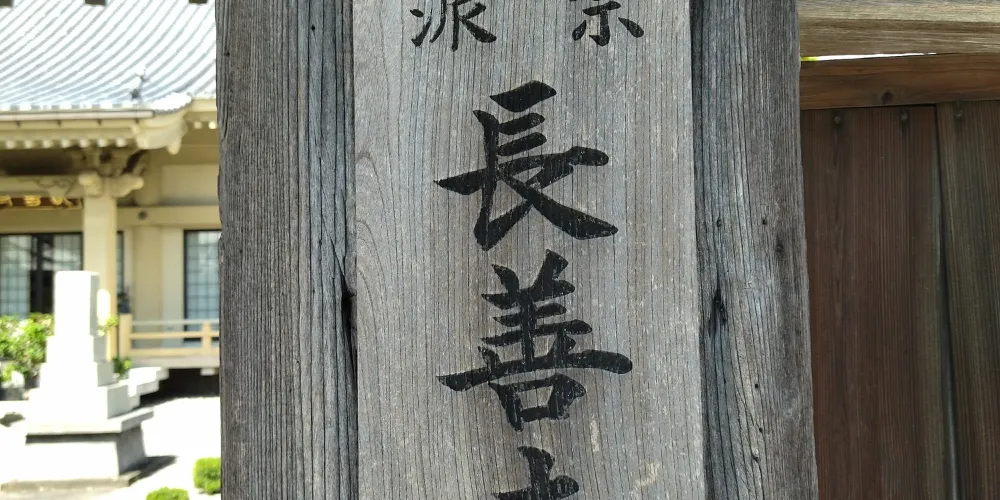 宗
派
長善寺